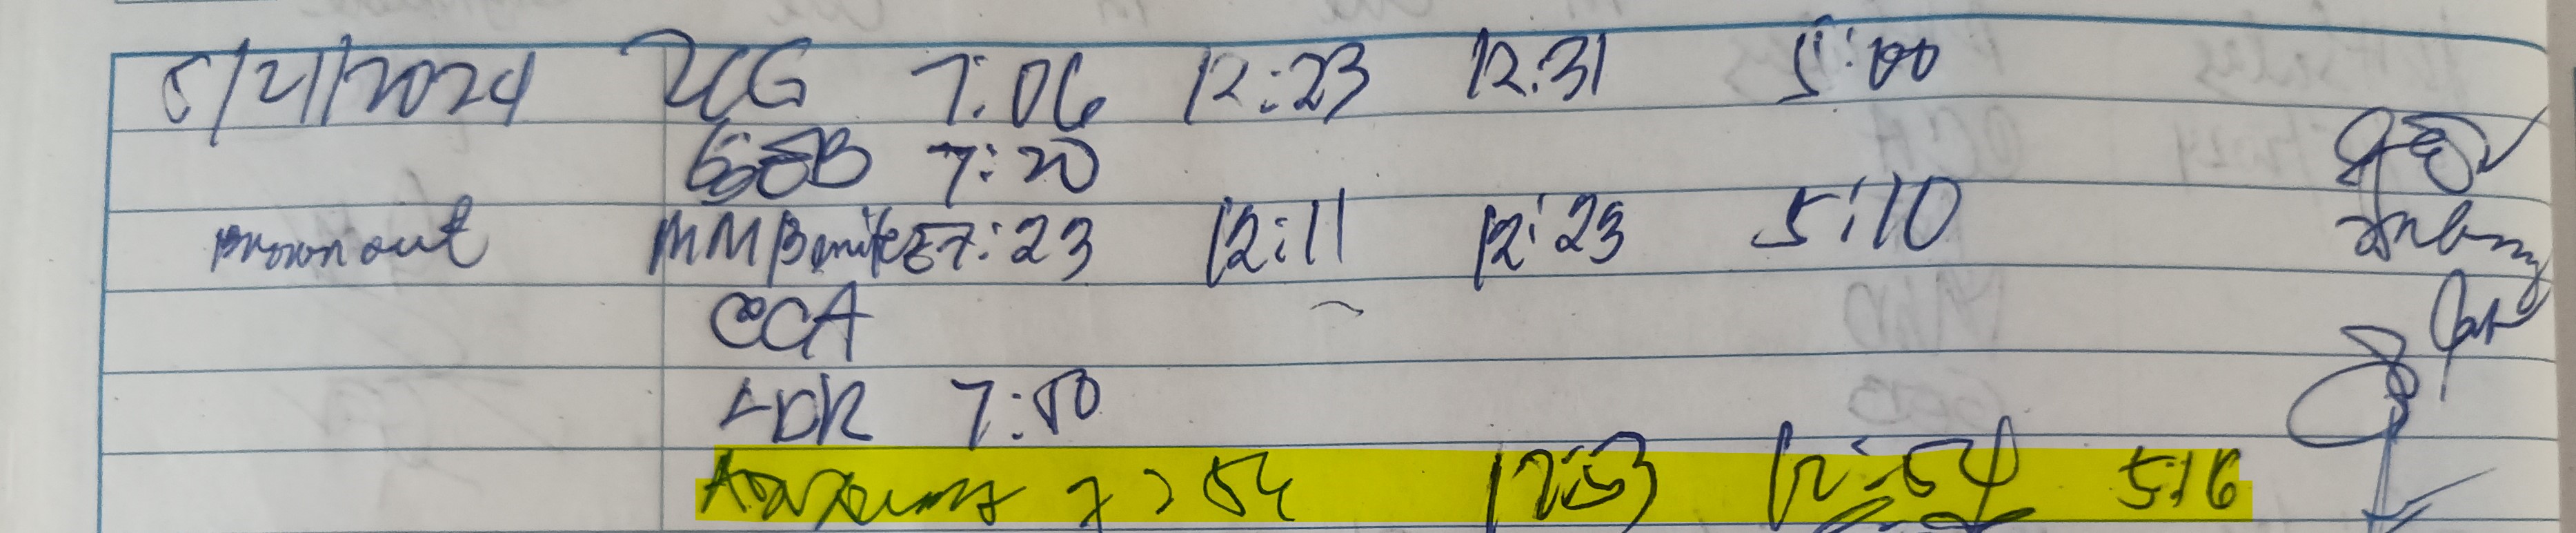 5/21/2024 UCG 7:06 12:23 12:31 5:00
GEB 7:20
Brown out MMBenitez 7:23 12:11 12:23 5:10
CCA
LDR 7:50
7:54 12:53 12:54 5:16